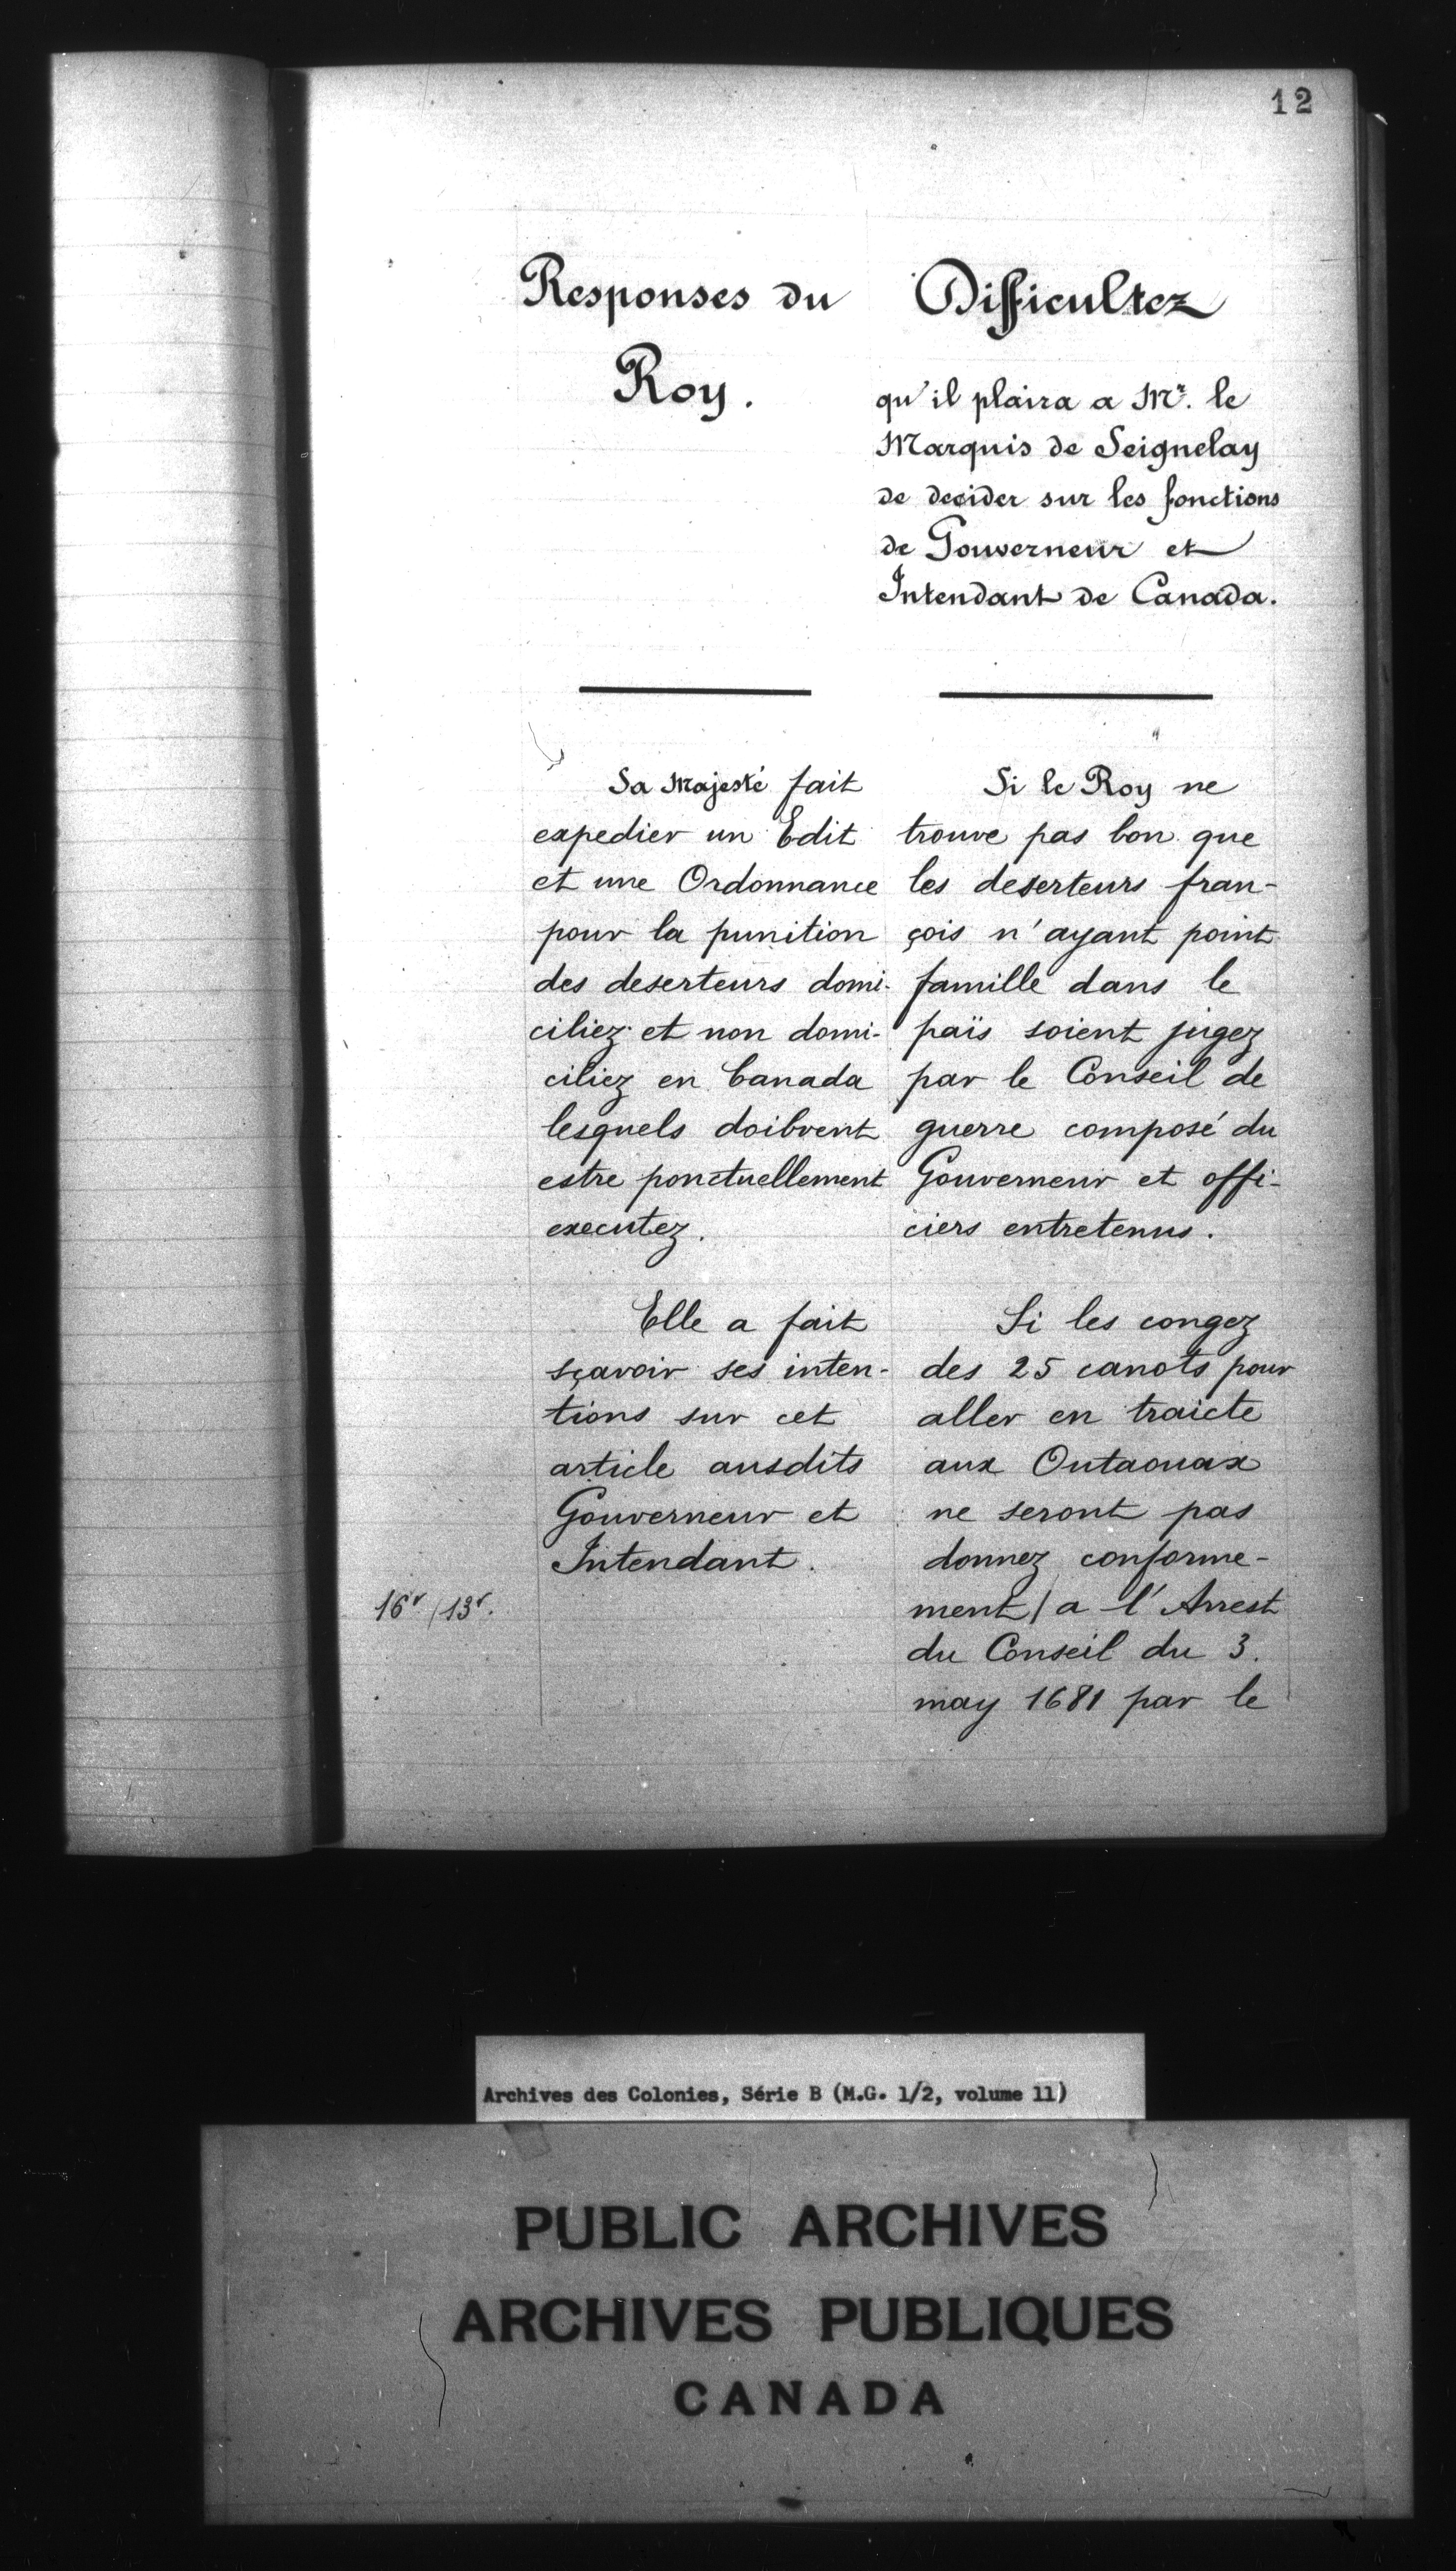 12
Responses du
Roy.
Sa Majesté fait
expedier un Edit
et une Ordonnance
pour la punition
des deserteurs domi-
ciliez et non domi-
ciliez en Canada
lesquels doibvent
estre ponctuellement
executez.
Elle a fait
sçavoir ses inten-
tions sur cet
article ausdits
Gouverneur et
Intendant.
16v/13r.
Difficultez
qu'il plaira a Mr. le
Marquis de Seignelay
de decider sur les fonctions
de Gouverneur et
Intendant de Canada.
Si le Roy ne
trouve pas bon que
les deserteurs fran-
çois n'ayant point
famille dans le
païs soient jugez
par le Conseil de
guerre composé du
Gouverneur et offi-
ciers entretenus.
Si les congez
des 25 canots pour
aller en traicte
aux Outaouax
ne seront pas
donnez conforme-
ment/a l'Arrest
du Conseil du 3.
may 1681 par le
Archives des Colonies, Série B (M.G. 1/2, volume 11)
PUBLIC ARCHIVES
ARCHIVES PUBLIQUES
CANADA